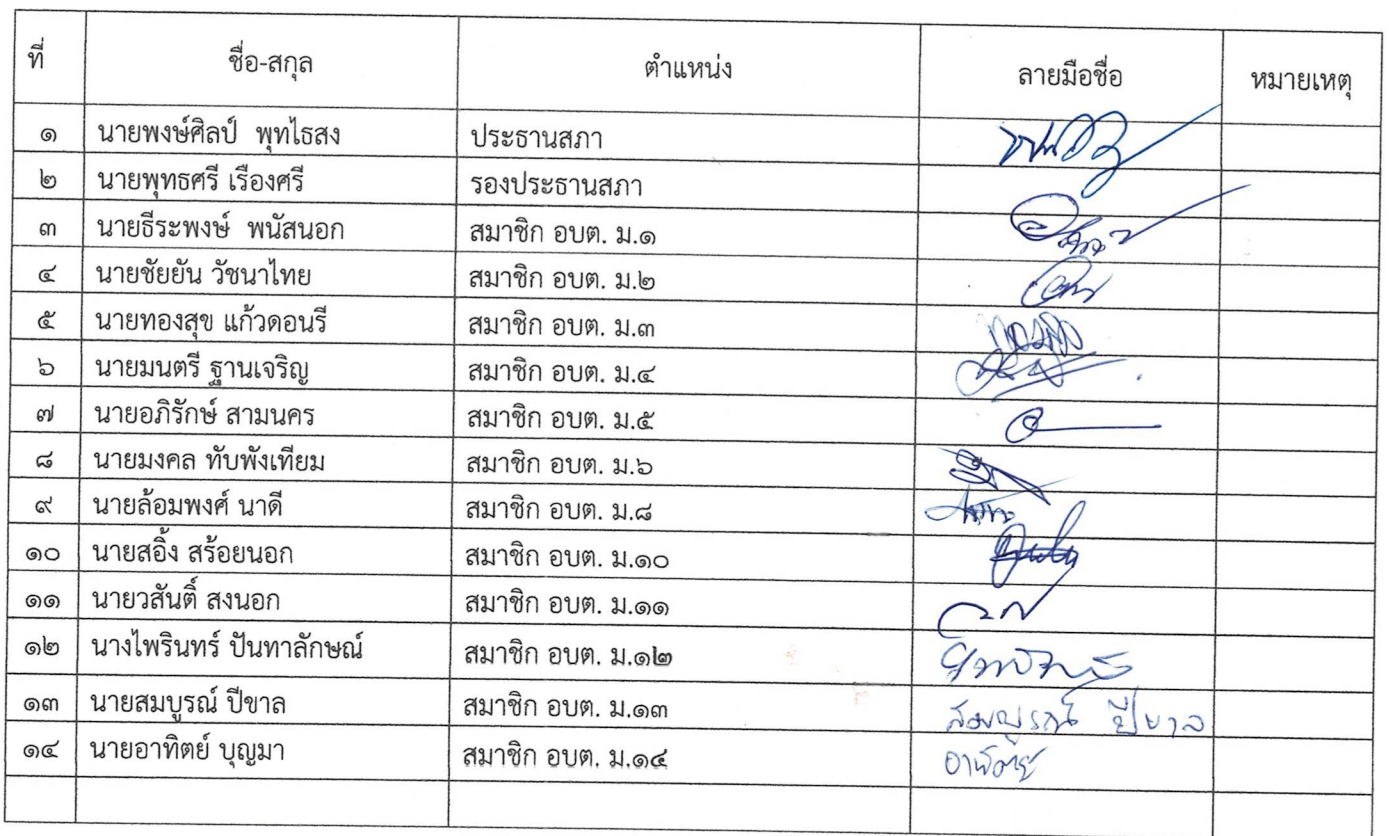 ที่ ชื่อ-สกุล ตำแหน่ง ลายมือชื่อ หมายเหตุ
๑ นายพงษ์ศิลป์ พุทไธสง ประธานสภา
๒ นายพุทธศรี เรืองศรี รองประธานสภา
๓ นายธีระพงษ์ พนัสนอก สมาชิก อบต. ม.๑
๔ นายชัยยัน วัชนาไทย สมาชิก อบต. ม.๒
๕ นายทองสุข แก้วดอนรี สมาชิก อบต. ม.๓
๖ นายมนตรี ฐานเจริญ สมาชิก อบต. ม.๔
๗ นายอภิรักษ์ สามนคร สมาชิก อบต. ม.๕
๘ นายมงคล ทับพังเทียม สมาชิก อบต. ม.๖
๙ นายล้อมพงศ์ นาดี สมาชิก อบต. ม.๘
๑๐ นายสอิ้ง สร้อยนอก สมาชิก อบต. ม.๑๐
๑๑ นายวสันติ์ สงนอก สมาชิก อบต. ม.๑๑
๑๒ นางไพรินทร์ ปันทาลักษณ์ สมาชิก อบต. ม.๑๒
๑๓ นายสมบูรณ์ ปีขาล สมาชิก อบต. ม.๑๓ สมบูรณ์ ปีขาล
๑๔ นายอาทิตย์ บุญมา สมาชิก อบต. ม.๑๔ อาทิตย์